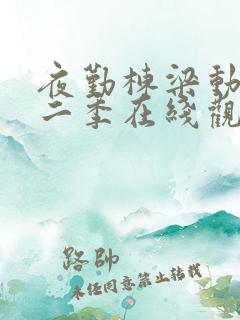 夜勤棟梁動
二季在綫觀
路帥
未经同意禁止转载